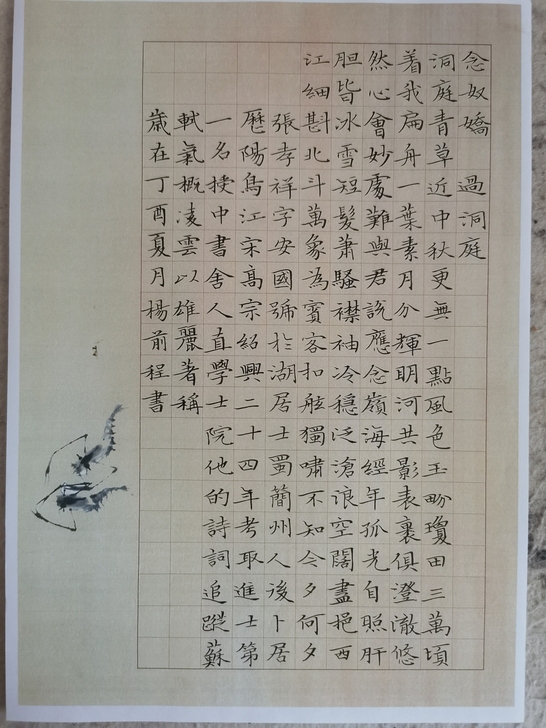 念奴嬌 過洞庭
洞庭青草近中秋更無一點風色玉畇瓊田三萬頃
着我扁舟一葉素月分輝明河共影表裏俱澄澈悠
然心會妙處難與君說應念嶺海經年孤光自照肝
胆皆冰雪短髮蕭騷襟袖冷穩泛滄浪空闊盡挹西
江細斟北斗萬象為賓客扣舷獨嘯不知今夕何夕
張孝祥字安國號於湖居士蜀簡州人後卜居
歷陽烏江宋高宗紹興二十四年考取進士第
一名授中書舍人直學士院他的詩詞追蹤蘇
軾氣概凌雲以雄麗著稱
歲在丁酉夏月楊前程書